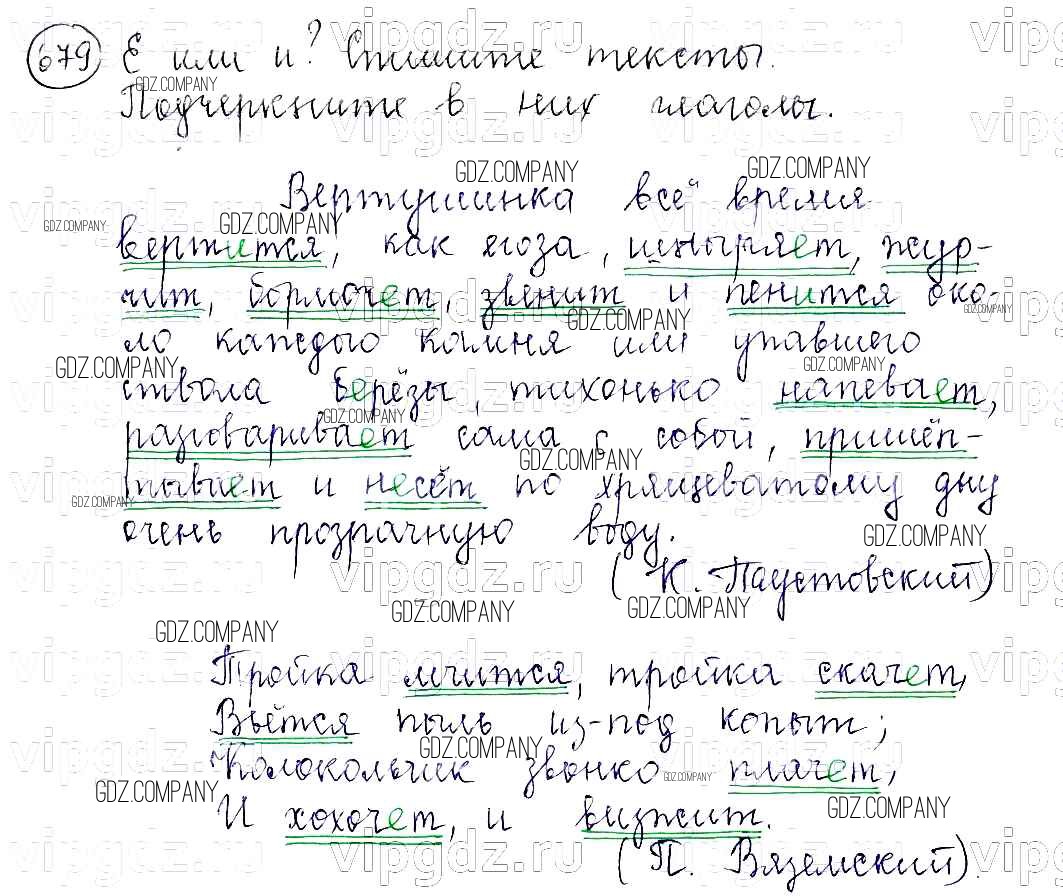 679 Е или и? Спишите тексты.
Подчеркните в них глаголы.
Вертушинка всё время
вертится, как егоза, шныряет, жур-
чит, бормочет, звенит и пенится око-
ло каждого камня или упавшего
ствола берёзы, тихонько напевает,
разговаривает сама с собой, пришёп-
тывает и несёт по хрящеватому дну
очень прозрачную воду.
(К. Паустовский)
Тройка мчится, тройка скачет,
Вьётся пыль из-под копыт;
Колокольчик звонко плачет,
И хохочет, и визжит.
(П. Вяземский).
GDZ.COMPANY
vipgdz.ru